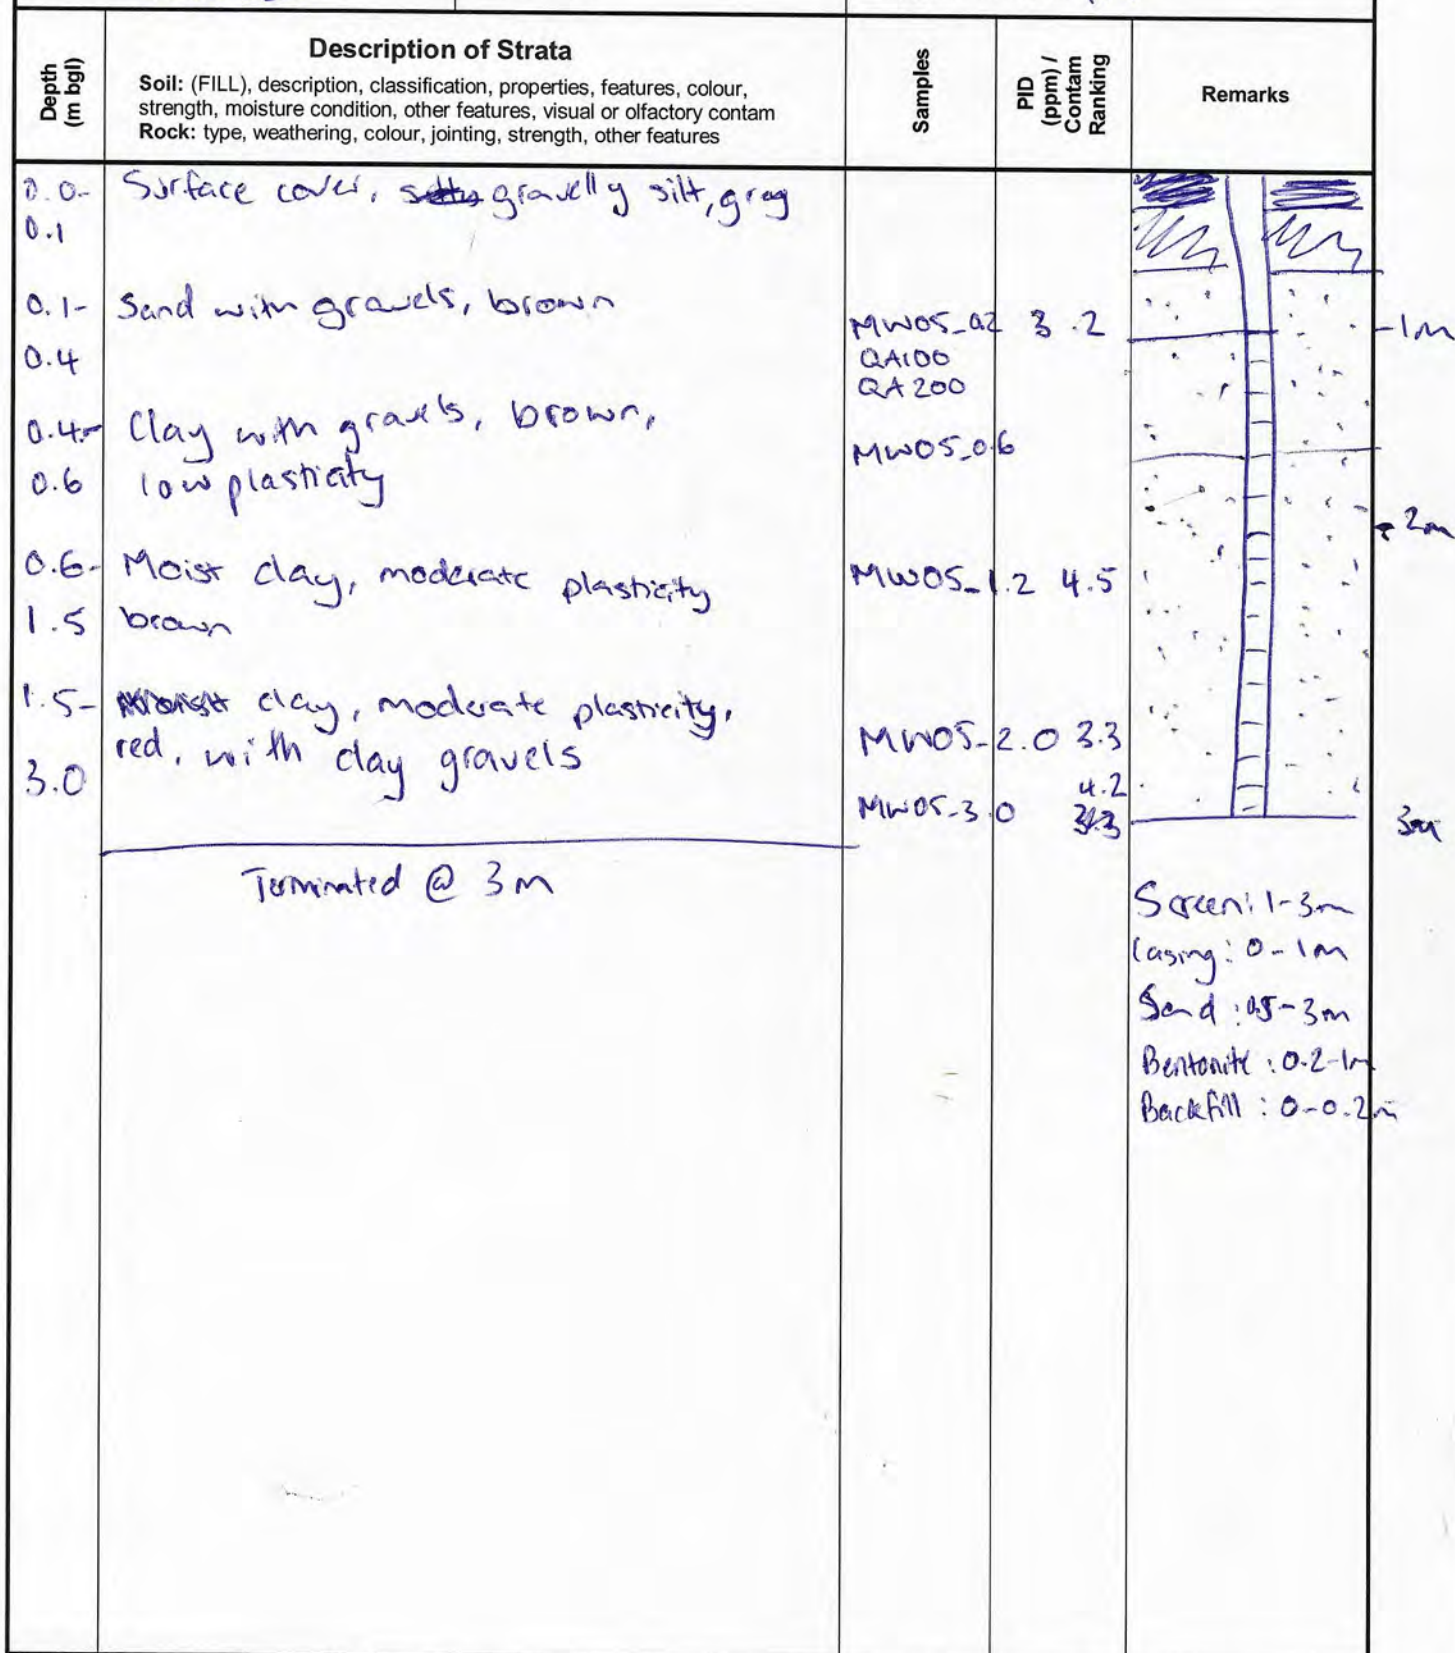 Depth (m bgl)
Description of Strata
Soil: (FILL), description, classification, properties, features, colour,
strength, moisture condition, other features, visual or olfactory contam
Rock: type, weathering, colour, jointing, strength, other features
Samples
PID (ppm) / Contam Ranking
Remarks
0.0- Surface cover, gravelly silt, grey
0.1
0.1- Sand with gravels, brown
MW05_0.2 3.2
-1m
0.4
QA100
QA200
0.4- Clay with gravels, brown,
MW05_0.6
0.6 low plasticity
2m
0.6- Moist clay, moderate plasticity
MW05_1.2 4.5
1.5 brown
1.5- clay, moderate plasticity,
red, with clay gravels
MW05_2.0 3.3
3.0
4.2
MW05_3.0
3m
Terminated @ 3m
Screen: 1-3m
Casing: 0-1m
Sand: 0.5-3m
Bentonite: 0.2-1m
Backfill: 0-0.2m